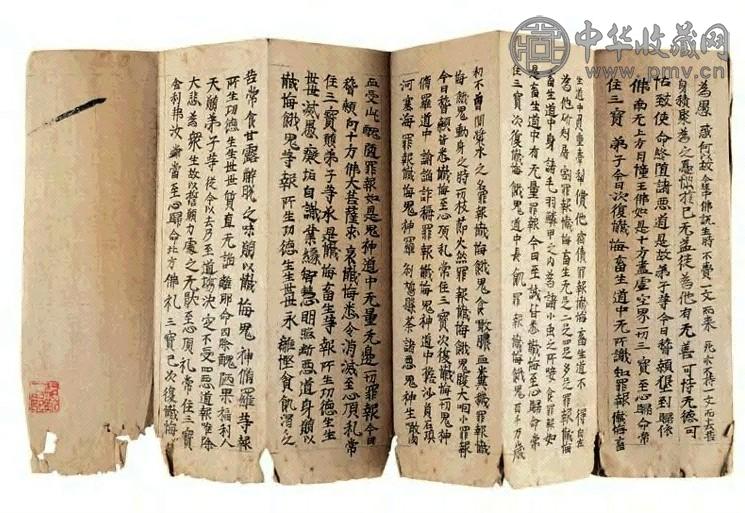 為愚 惑何以故 今 佛說生時不賫一文而來 死亦不持一文而去苦
身積聚為之憂惱於己无益徒為他有无善可恃无德可
怙致使命終墮諸惡道是故弟子等今日稽顙懇到歸依
佛南无上方月幢王佛如是十方盡虛空界一切三寶至心歸命常
住三寶 弟子今日次復懺悔畜生道中无所識知罪報懺悔畜
生道中負重牽犁償他宿債罪報懺悔畜生道不得自在
為他斫刺屠割罪報懺悔畜生无足二足四足多足罪報懺悔
畜生道中身諸毛羽鱗甲之內為諸小虫之所唼食罪報如
是畜生道中有无量罪報今日至誠皆悉懺悔至心歸命常
住三寶次復懺悔餓鬼道中長飢罪報懺悔餓鬼百千万歲
初不曾聞漿水之名罪報懺悔餓鬼食噉膿血糞穢罪報懺
悔餓鬼動身之時一切枝節火然罪報懺悔餓鬼腹大咽小罪報
今日稽顙皆悉懺悔至心頂礼常住三寶次復懺悔一切鬼神
脩羅道中諛諂詐稱罪報懺悔鬼神道中擔沙負石填
河塞海罪報懺悔鬼神羅剎鳩槃荼諸惡鬼神生噉肉
血受此醜陋罪報如是鬼神道中无量无邊一切罪報今日
稽顙向十方佛大菩薩求哀懺悔悉令消滅至心頂礼常
住三寶願弟子等承是懺悔畜生等報所生功德生生
世世滅愚癡垢自識業緣智慧明照斷惡道身願以
懺悔餓鬼等報所生功德生生世世永離慳貪飢渴之
苦常食甘露解脫之味願以懺悔鬼神脩羅等報
所生功德生生世世質直无諂離邪命因除醜陋果福利人
天願弟子等從今以去乃至道場決定不受四惡道報唯除
大悲為眾生故以誓願力處之无猒至心頂礼常住三寶
舍利弗汝等當至心歸命北方佛礼三寶已次復懺悔
中华收藏网
www.pmv.cn